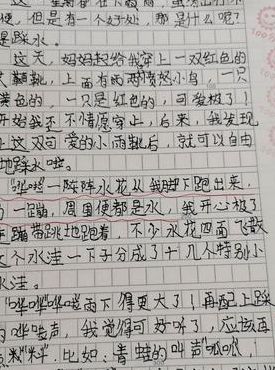 便，但是有一个好处，那是什么呢？
是踩水。
这天，妈妈起给我穿上一双红色的
靴，上面有两两愤怒小鸟，一只
黄色的，一只是红色的，可爱极了！
开始我歪不情愿穿上，后来，我发现
上这双可爱的小雨靴后，就可以自由
地踩水啦。
"哗啦"一阵阵水花从我脚下跑出来，
一蹦，周围便都是水，我开心极了
蹦带跳地跑着，不少水花四面飞散
这个水洼一下子分成了十几个特别小
水洼。
"哗哗哗啦雨下得更大了！再配上踩
的哗啦声，我觉得可好听了，应该再
点料"料，比如：青蛙的叫声"呱呱，